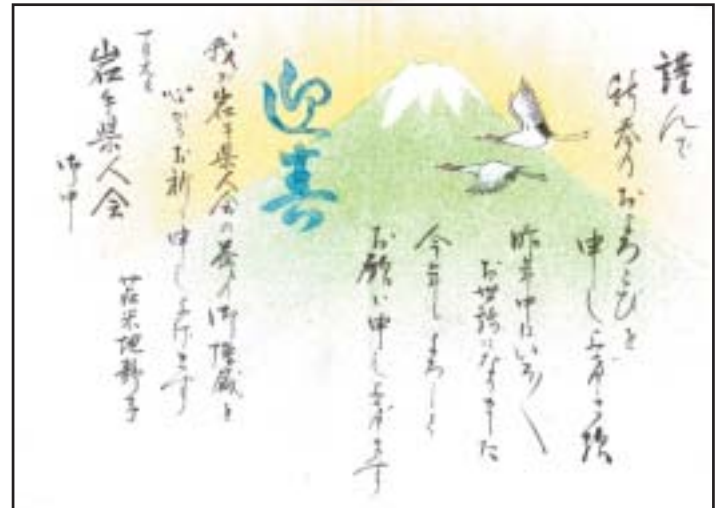 謹んで
新春のおよろこびを
申し上げます
昨年中はいろ〱
お世話になりました
今年もよろしく
お願い申し上げます
迎春
我が岩手県人会の益々御隆盛を
心からお祈り申し上げます
一月元旦
岩手県人会
御中